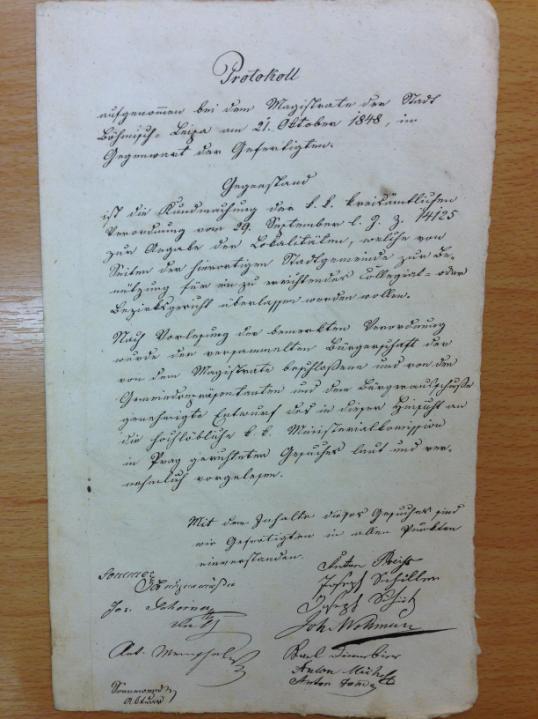 Protokoll
aufgenommen bei dem Magistrate der Stadt
Böhmisch-Leipa am 21. Oktober 1848, im
Gegenwart der Gefertigten.
Gegenstand
ist die Kundmachung der k. k. kreisämtlichen
Verordnung vom 29. September l. J. Z. 14125
zur Angabe der Lokalitäten, welche von
Seiten der hierortigen Stadtgemeinde zur Be-
nützung für ein zu errichtendes Collegial- oder
Bezirksgericht überlassen werden wollen.
Nach Vorlesung der bemerkten Verordnung
wurde der versammelten Bürgerschaft der
von dem Magistrate beschlossene und von den
Gemeinderepräsentanten und dem Bürgerausschusse
genehmigte Entwurf des in dieser Hinsicht an
die hochlöbliche k. k. Ministerialkomission
in Prag gerichteten Gesuches laut und ver-
nehmlich vorgelesen.
Mit dem Inhalte dieses Gesuches sind
wir Gefertigten in allen Punkten
einverstanden.
Bürgermeister
Joseph Schiller
Joseph
Joh.
Ant.
Anton
Anton